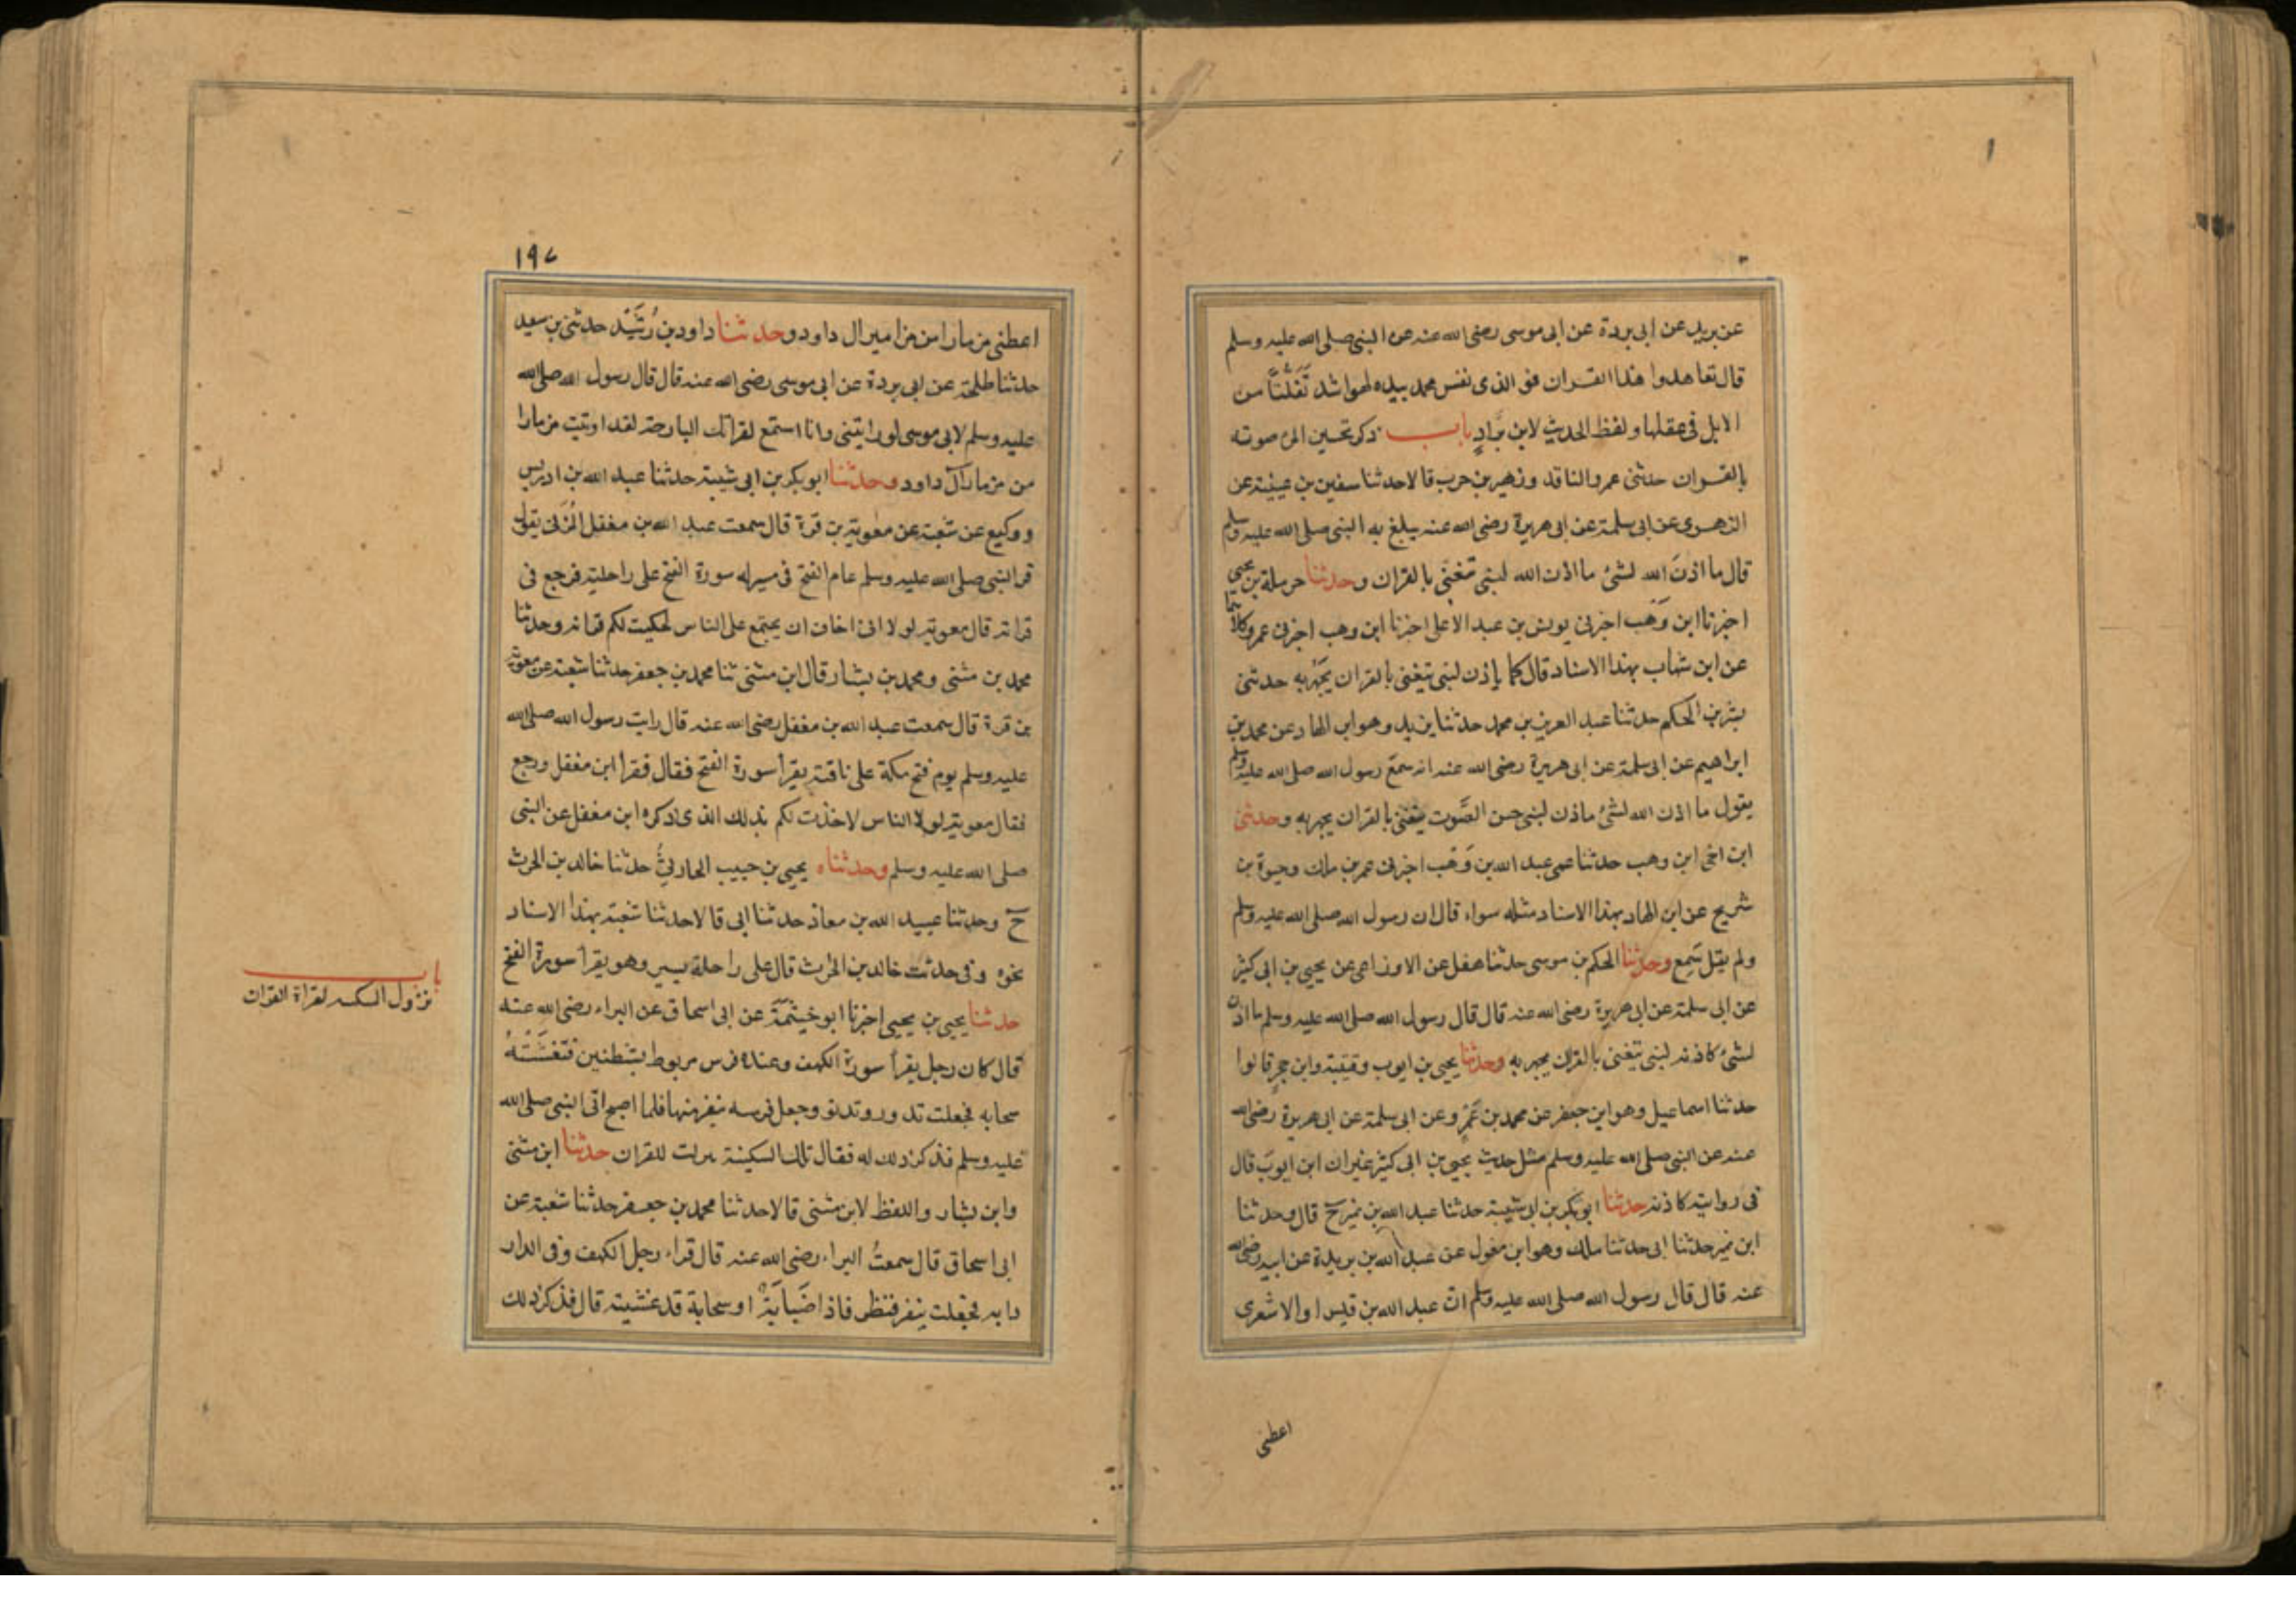 عن بريد عن ابى بردة عن ابى موسى رضى الله عنه عن النبى صلى الله عليه وسلم
قال تعاهدوا هذا القران فو الذى نفس محمد بيده لهو اشد تَفَلُّتًا من
الابل فى عقلها ولفظ الحديث لابن بَرَّادٍ باب ذكر تحسين المرء صوته
بالقران حدثنى عمرو الناقد وزهير بن حرب قالا حدثنا سفين بن عيينة عن
الزهرى عن ابى سلمة عن ابى هريرة رضى الله عنه يبلغ به النبى صلى الله عليه وسلم
قال ما اذنَ الله لشئ ما اذن الله لنبى تغنى بالقران وحدثنا حرملة بن يحيى
اخبرنا ابن وَهب اخبرنى يونس بن عبد الاعلى اخبرنا ابن وهب اخبرنى عمرو كلاهما
عن ابن شهاب بهذا الاسناد قال كما ياذن لنبى يتغنى بالقران يَجْهَر به حدثنى
بشر بن الحكم حدثنا عبد العزيز بن محمد حدثنا يزيد وهو ابن الهاد عن محمد بن
ابراهيم عن ابى سلمة عن ابى هريرة رضى الله عنه انه سمع رسول الله صلى الله عليه وسلم
يقول ما اذن الله لشئ ماذن لنبى حسن الصَّوت يتغنى بالقران يجهر به وحدثنى
ابن اخى ابن وهب حدثنا عمى عبد الله بن وَهب اخبرنى عمر بن مالك وحيوة بن
شريح عن ابن الهاد بهذا الاسناد مثله سواء قال ان رسول الله صلى الله عليه وسلم
ولم يقل سَمِع وحدثنا الحكم بن موسى حدثنا هقل عن الاوزاعى عن يحيى بن ابى كثير
عن ابى سلمة عن ابى هريرة رضى الله عنه قال قال رسول الله صلى الله عليه وسلم ما اذن
لشئ كاذنه لنبى يتغنى بالقران يجهر به وحدثنا يحيى بن ايوب وقتيبة وابن حجر قالوا
حدثنا اسماعيل وهو ابن جعفر عن محمد بن عَمْرو عن ابى سلمة عن ابى هريرة رضى الله
عنه عن النبى صلى الله عليه وسلم مثل حديث يحيى بن ابى كثير غير ان ابن ايوب قال
فى روايته كاذنه حدثنا ابو بكر بن ابى شيبة حدثنا عبد الله بن نمير ح قال وحدثنا
ابن نمير حدثنا ابى حدثنا مالك وهو ابن مغول عن عبد الله بن بريدة عن ابيه رضى الله
عنه قال قال رسول الله صلى الله عليه وسلم ان عبد الله بن قيس او الاشعرى
اعطى
١٩٧
اعطى مزمارا من مزامير ال داود وحدثنا داود بن رُشَيْد حدثنى بن سعيد
حدثنا طلحة عن ابى بردة عن ابى موسى رضى الله عنه قال قال رسول الله صلى الله
عليه وسلم لابى موسى لو رايتنى وانا استمع لقراتك البارحة لقد اوتيت مزمارا
من مزمار آل داود وحدثنا ابو بكر بن ابى شيبة حدثنا عبد الله بن ادريس
ووكيع عن شعبة عن معوية بن قرة قال سمعت عبد الله بن مغفل المُزَنى يقول
قرا النبى صلى الله عليه وسلم عام الفتح فى مسير له سورة الفتح على راحلته فرجع فى
قراته قال معوية لولا انى اخاف ان يجتمع على الناس لحكيت لكم قراته وحدثنا
محمد بن مثنى ومحمد بن بشار قال ابن مثنى ثنا محمد بن جعفر حدثنا شعبة عن معوية
بن قرة قال سمعت عبد الله بن مغفل رضى الله عنه قال رايت رسول الله صلى الله
عليه وسلم يوم فتح مكة على ناقته يقرا سورة الفتح فقال فقرا ابن مغفل ورجع
فقال معوية لولا الناس لاخذت لكم بذلك الذى ذكره ابن مغفل عن النبى
صلى الله عليه وسلم وحدثناه يحيى بن حبيب الحارثىُّ حدثنا خالد بن الحرث
ح وحدثنا عبيد الله بن معاذ حدثنا ابى قالا حدثنا شعبة بهذا الاسناد
نحوه وفى حديث خالد بن الحرث قال على راحلة يسير وهو يقرا سورة الفتح
باب
نزول السكينه لقراة القران
حدثنا يحيى بن يحيى اخبرنا ابو خيثمَةَ عن ابى اسحاق عن البراء رضى الله عنه
قال كان رجل يقرا سورة الكهف وعنده فرس مربوط بشطنين فتغشَّتْهُ
سحابه فجعلت تدور وتدنو وجعل فرسه ينفر منها فلما اصبح اتى النبى صلى الله
عليه وسلم فذكر ذلك له فقال تلك السكينة نزلت للقران حدثنا ابن مثنى
وابن بشار واللفظ لابن مثنى قالا حدثنا محمد بن جعفر حدثنا شعبة عن
ابى اسحاق قال سمعتُ البراء رضى الله عنه قال قراء رجل الكهف وفى الدار
دابه فجعلت ينفر فنظر فاذا ضَبابَةٌ او سحابة قد غشيته قال فذكر ذلك